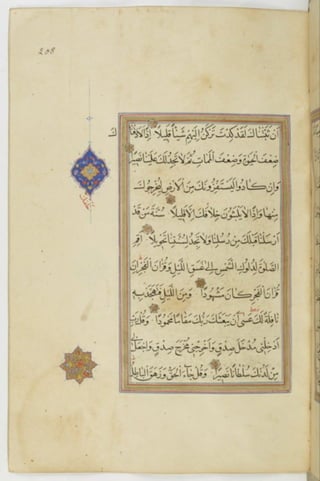 أن ثبتناك لقد كدت تركن إليهم شيئا قليلا إذا لأذقناك
ضعف الحيوة وضعف الممات ثم لا تجد لك علينا نصيرا
وإن كادوا ليستفزونك من الأرض ليخرجوك
منها وإذا لا يلبثون خلافك إلا قليلا سنة من قد
أرسلنا قبلك من رسلنا ولا تجد لسنتنا تحويلا أقم
الصلوة لدلوك الشمس إلى غسق الليل وقرآن الفجر إن
قرآن الفجر كان مشهودا ومن الليل فتهجد به
نافلة لك عسى أن يبعثك ربك مقاما محمودا وقل رب
أدخلني مدخل صدق وأخرجني مخرج صدق واجعل لي
من لدنك سلطانا نصيرا وقل جاء الحق وزهق الباطل